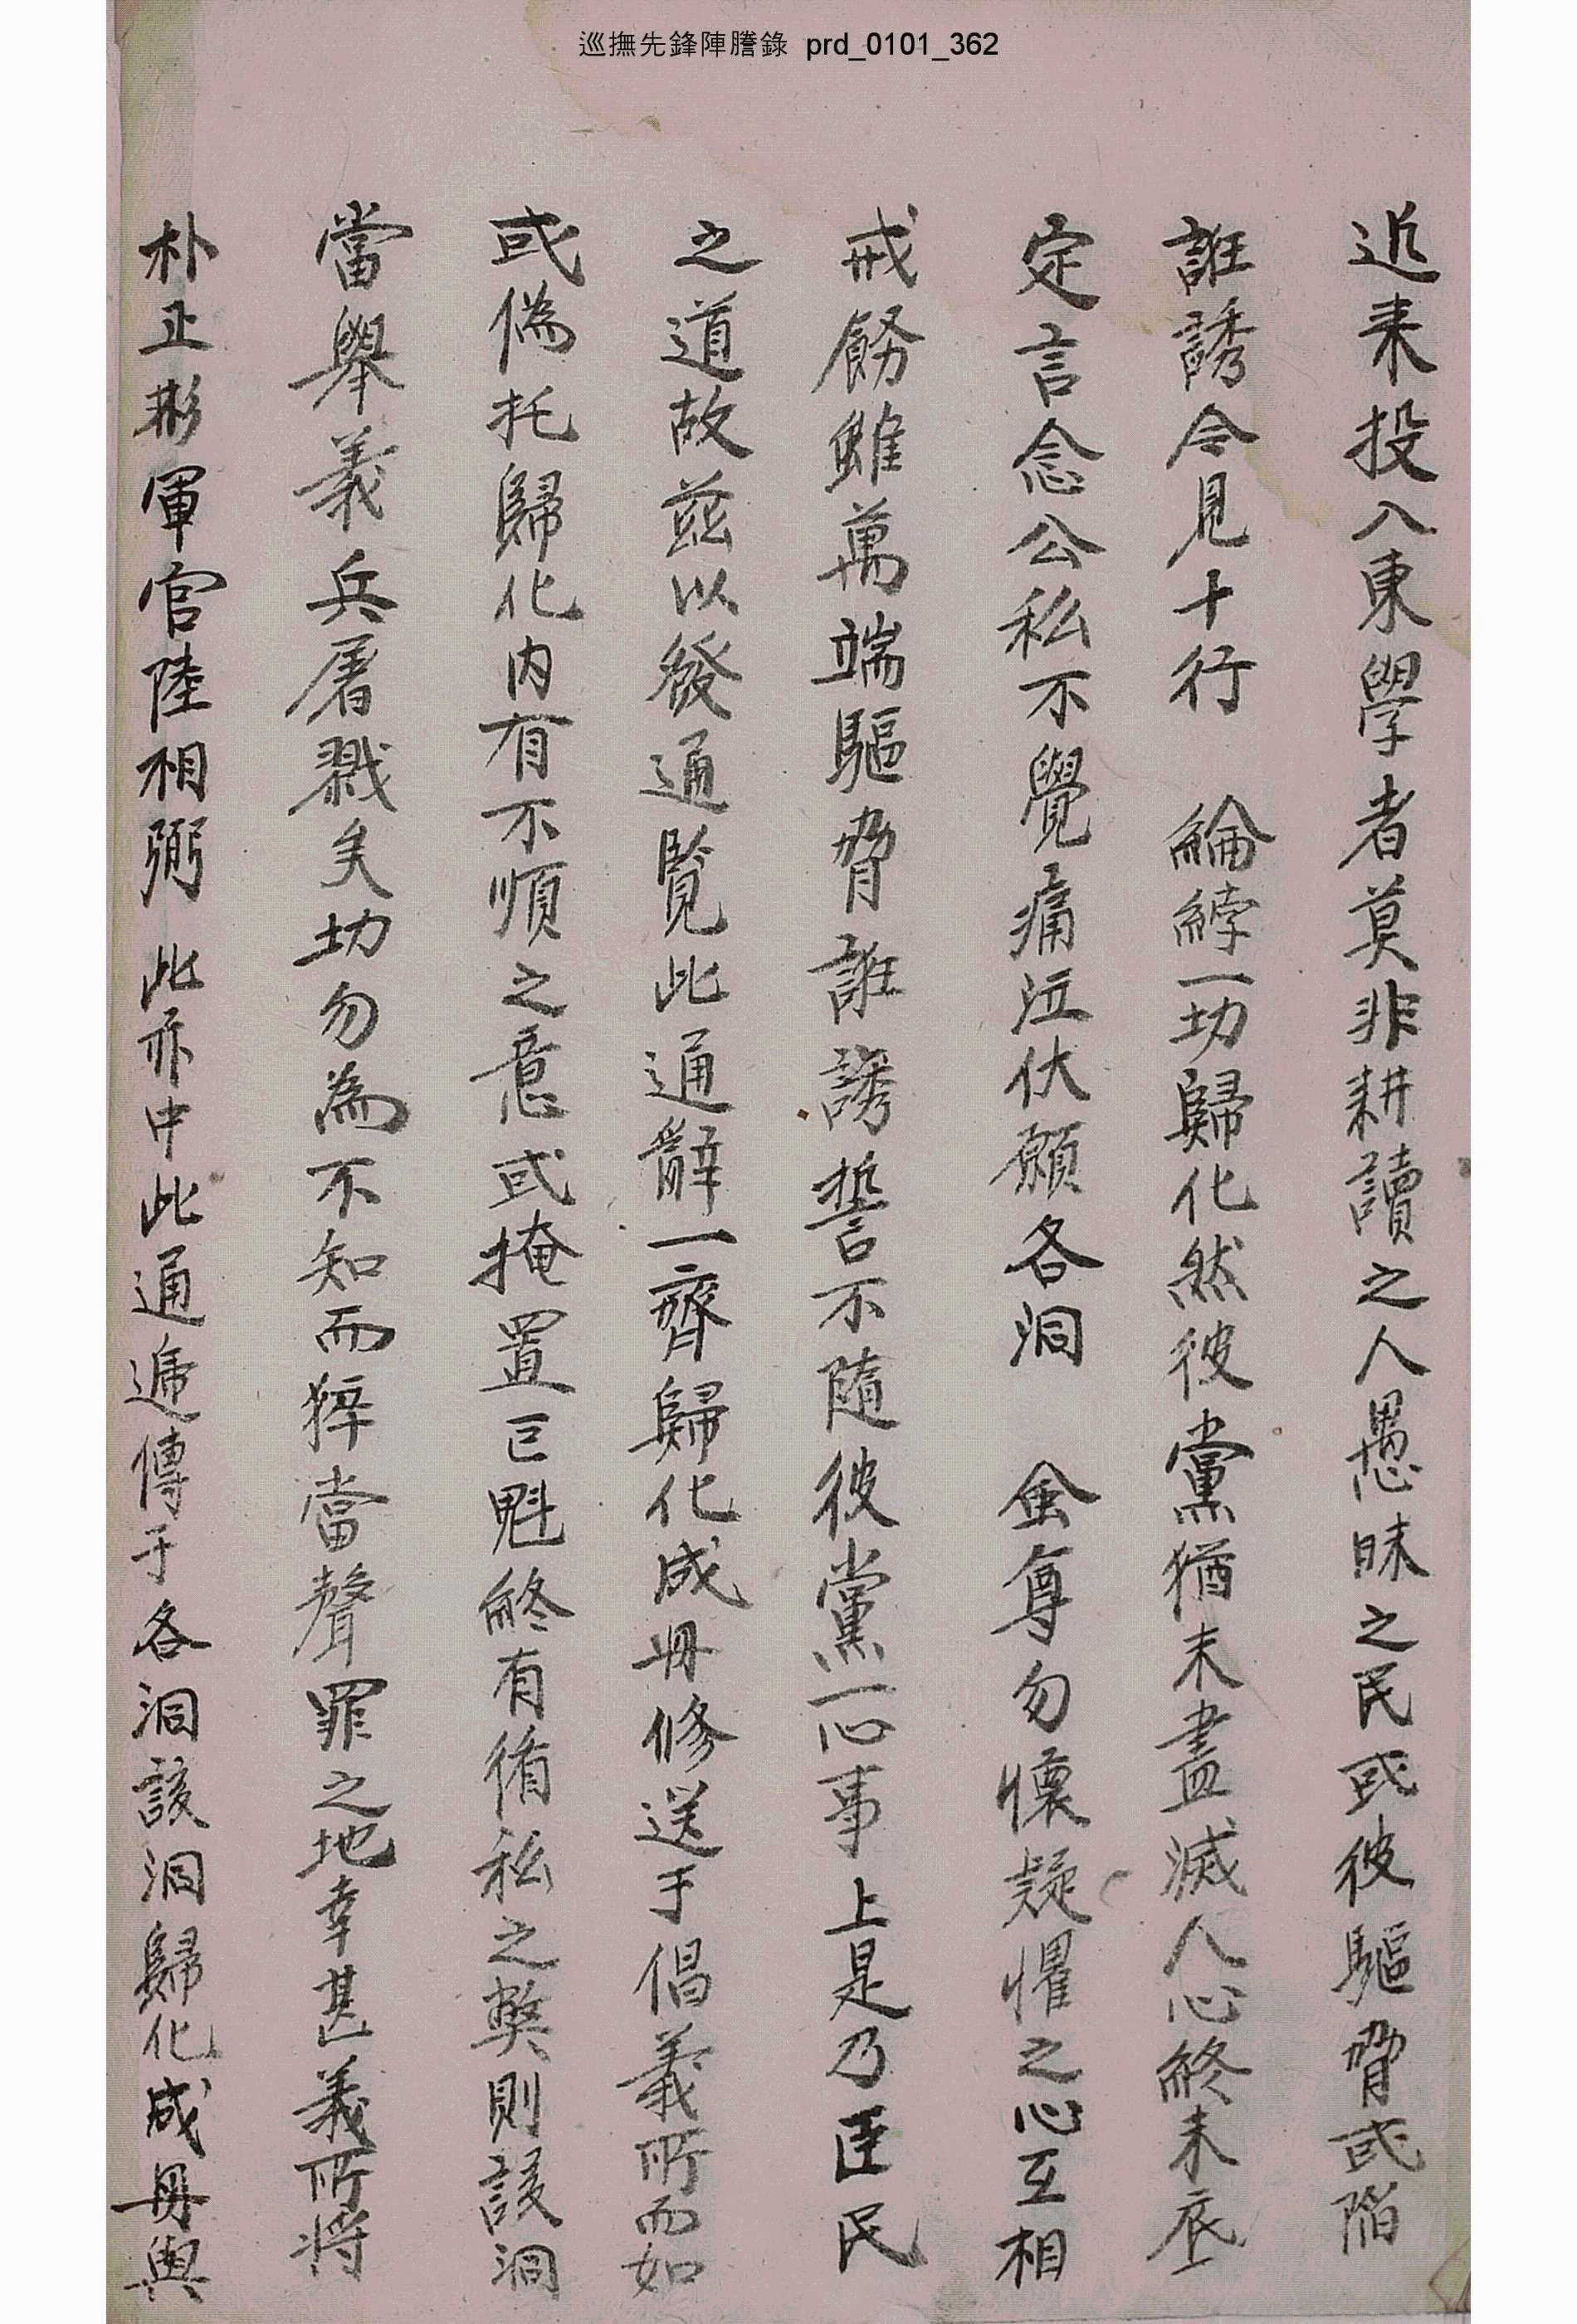 巡撫先鋒陣謄錄 prd_0101_362
近来投入東學者莫非耕讀之人愚昧之民或彼驅脅或陷
誑誘今見十行 綸綍一切歸化然彼黨猶未盡滅人心終未底
定言念公私不覺痛泣伏願各洞 僉尊勿懷疑懼之心互相
戒飭雖萬端驅脅誑誘誓不隨彼黨一心事上是乃臣民
之道故茲以發通覽此通辭一齊歸化成冊修送于倡義所而如
或僞托歸化內有不順之意或掩置巨魁終有循私之弊則該洞
當舉義兵屠戮矣切勿為不知而猝當聲罪之地幸甚義所將
朴正彬軍官陸相弼 此亦中此通遞傳于各洞該洞歸化成冊與